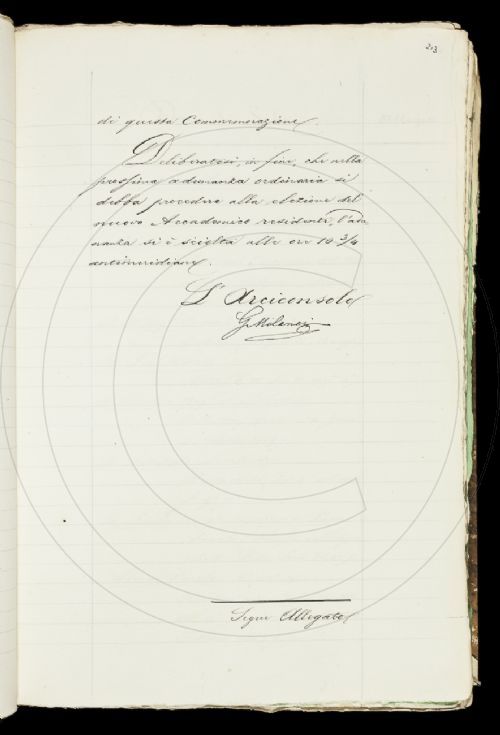 213
di questa Commemorazione.
Deliberatosi, in fine, che nella
prossima adunanza ordinaria si
debba procedere alla elezione del
nuovo Accademico residente, l'adu
nanza si è sciolta alle ore 10 3/4
antimeridiane.
L'Arciconsolo
G Milanesi
Segue Allegato